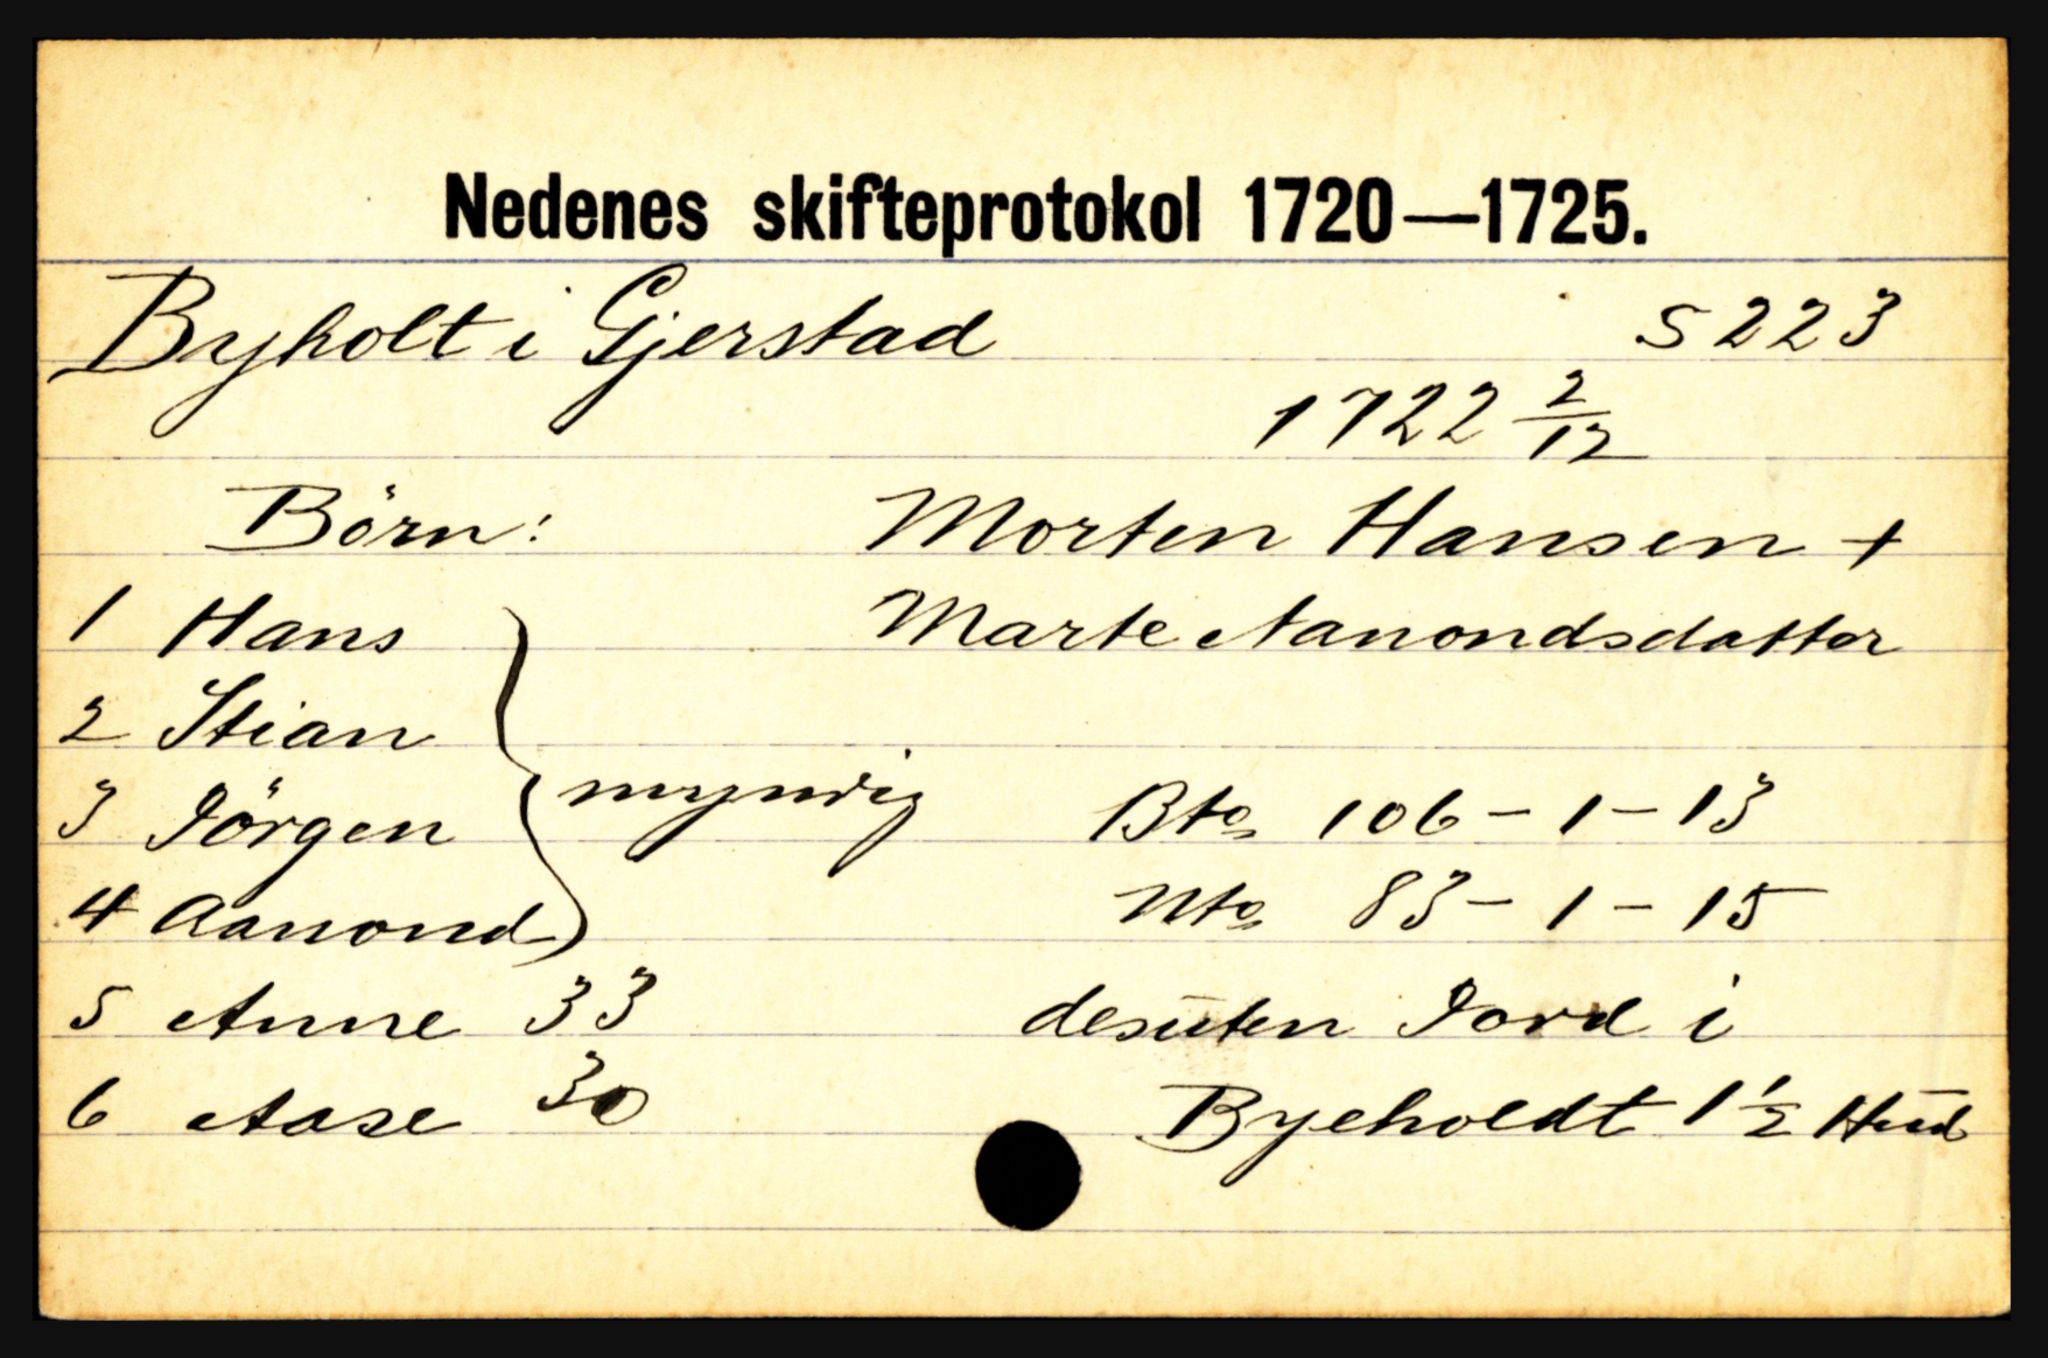 Nedenes skifteprotokol 1720—1725.
Byholt i Gjerstad S 223
1722 2/12
Börn: Morten Hansen +
1 Hans Marte Aanondsdatter
2 Stian
3 Jörgen } myndig Bto 106 - 1 - 13
4 Aanond Nto 83 - 1 - 15
5 Anne 33 desuten Jord i
6 Aase 30 Byeholdt 1 1/2 Hud